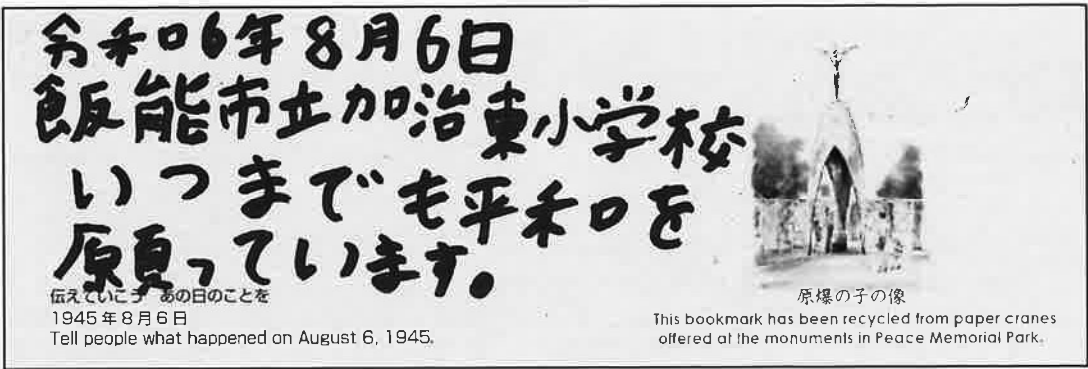 令和6年8月6日
飯能市立加治東小学校
いつまでも平和を
願っています。
伝えていこう あの日のことを
1945年8月6日
Tell people what happened on August 6, 1945.
原爆の子の像
This bookmark has been recycled from paper cranes
offered at the monuments in Peace Memorial Park.